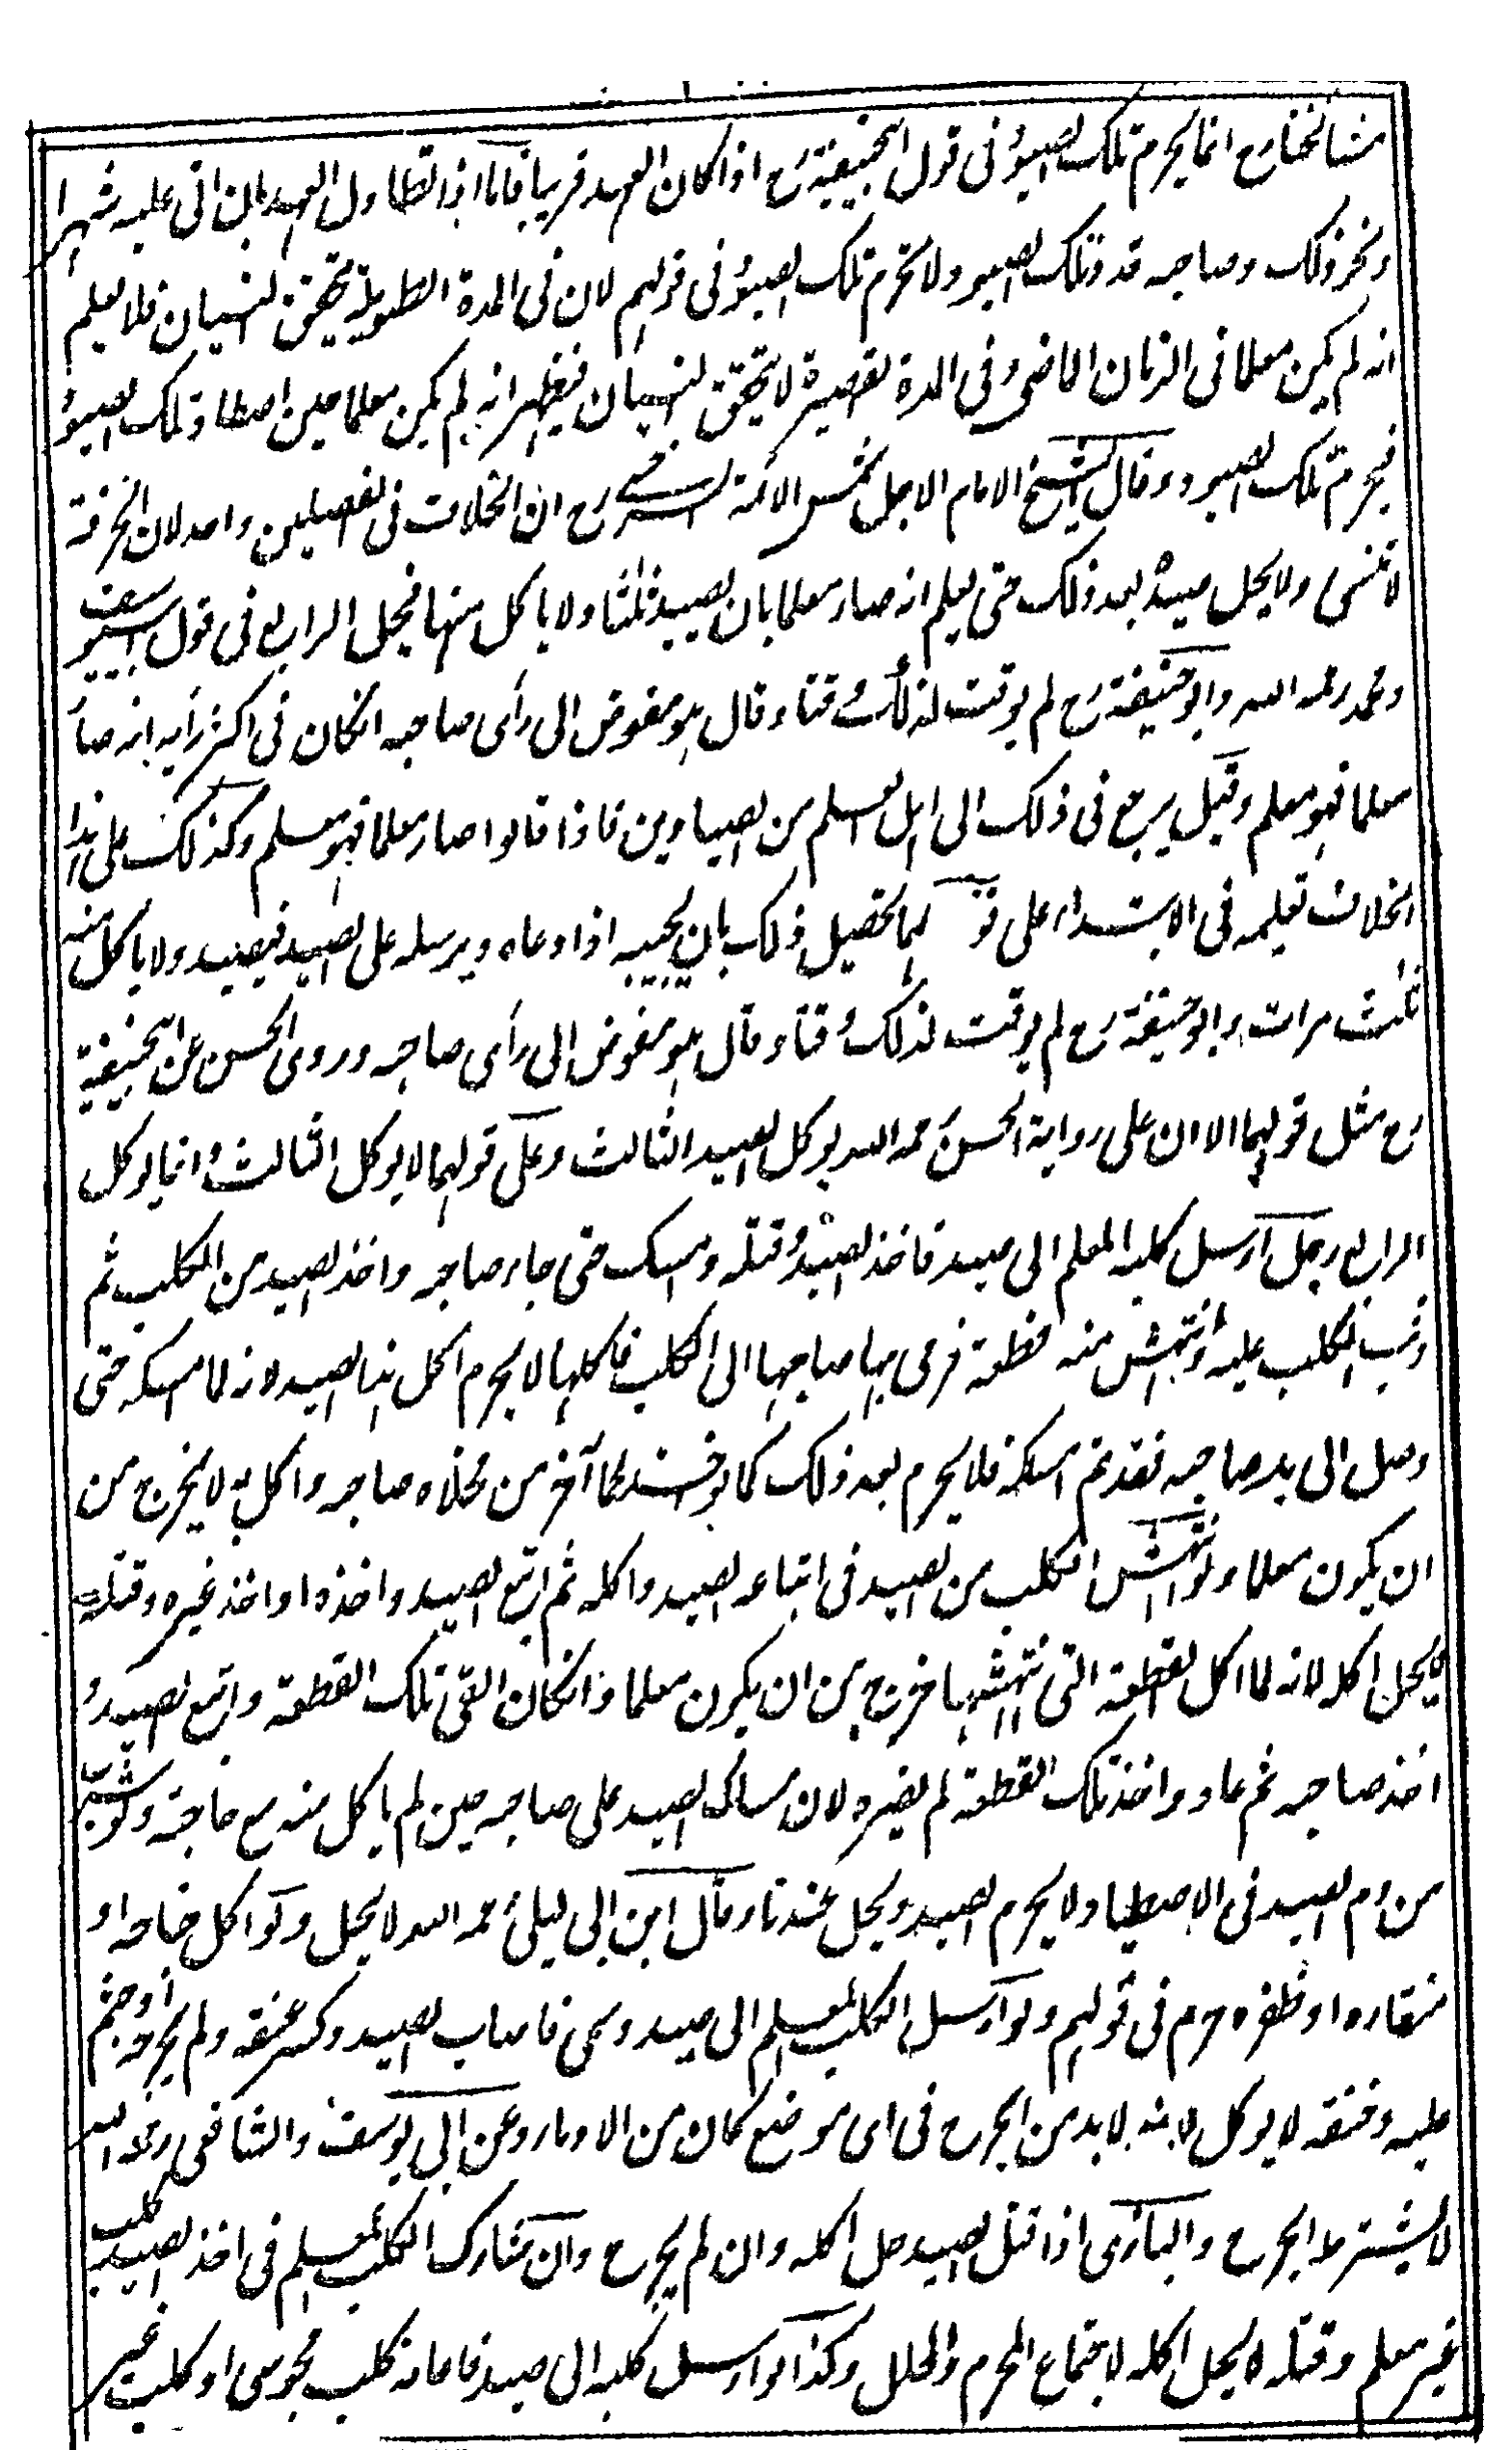 مشائخنا رح انما يحرم تلك الصيود فى قول ابيحنيفة رح اذا كان العهد قريبا فاما اذا تطاول العهد بان اتى عليه شهر ا
و نحو ذلك و صاحبه قد قدّد تلك الصيود لا تحرم تلك الصيود فى قولهم لان فى المدة الطويلة يتحقق النسيان فلا يعلم
انه لم يكن معلما فى الزمان الماضى و فى المدة القصيرة لا يتحقق النسيان فيظهر انه لم يكن معلما حين اصطاد تلك الصيود
فيحرم تلك الصيود و قال الشيخ الامام الاجل شمس الائمة السرخسى رح ان الخلاف فى الفصلين واحد لان الحرفة
لا تنسى ولا يحل صيده بعد ذلك حتى يعلم انه صار معلما بان يصيد ثلثا ولا ياكل منها فيحل الرابع فى قول ابييوسف
و محمد رحمه الله و ابو حنيفة رح لم يوقت لذلك وقتا و قال هو مفوض الى رأى صاحبه انكان فى اكثر رأيه انه صار
معلما فهو معلم و قيل يرجع فى ذلك الى اهل العلم من الصيادين فاذا قالوا صار معلما فهو معلم و كذلك على هذا
الخلاف تعليمه فى الابتداء على قولهما يحصل ذلك بان يجيبه اذا دعاه و يرسله على الصيد فيصيد ولا ياكل منه
ثلث مرات و ابو حنيفة رح لم يوقت لذلك وقتا و قال هو مفوض الى رأى صاحبه و روى الحسن عن ابيحنيفة
رح مثل قولهما الا ان على رواية الحسن رحمه الله يوكل الصيد الثالث و على قولهما لا يوكل الثالث و انما يوكل
الرابع رجل ارسل كلبه المعلم الى صيد فاخذ الصيد و قتله و امسك حتى جاء صاحبه و اخذ الصيد من الكلب ثم
وثب الكلب عليه و انتهش منه قطعة فرمى بها صاحبها الى الكلب فاكلها لا يحرم اكل هذا الصيد لانه لما امسكه حتى
وصل الى يد صاحبه فقد تم امساكه فلا يحرم بعد ذلك كما لو اخذ لحما آخر من مخلاه صاحبه و اكل به لا يخرج من
ان يكون معلما و لو انتهش الكلب من الصيد فى اتباعه الصيد و اكله ثم اتبع الصيد و اخذه او اخذ غيره و قتله
لا يحل اكله لانه لما اكل القطعة التى انتهشها خرج من ان يكون معلما و انكان القى تلك القطعة و اتبع الصيد و
اخذ صاحبه ثم عاد و اخذ تلك القطعة لم يضره لان امساك الصيد على صاحبه حين لم ياكل منه مع حاجته و لو شرب
من دم الصيد فى الاصطياد لا يحرم الصيد و يحل عندنا و قال ابن ابى ليلى رحمه الله لا يحل و لو اكل جناحه او
منقاره او ظفره حرم فى قولهم و لو ارسل الكلب المعلم الى صيد و سمى فاصاب الصيد و كسر عنقه و لم يجرحه او جثم
عليه و خنقه لا يوكل لانه لا بد من الجرح فى اى موضع كان من الاوداج و عن ابى يوسف و الشافعى رحمه الله
لا يشترط الجرح و البازى اذا قتل الصيد حل اكله و ان لم يجرح و ان شارك الكلب المعلم فى اخذ الصيد كلب
غير معلم و قتله لا يحل اكله لاجتماع المحرم و المحلل و كذا لو ارسل كلبه الى صيد فاعانه كلب مجوسى او كلب غير